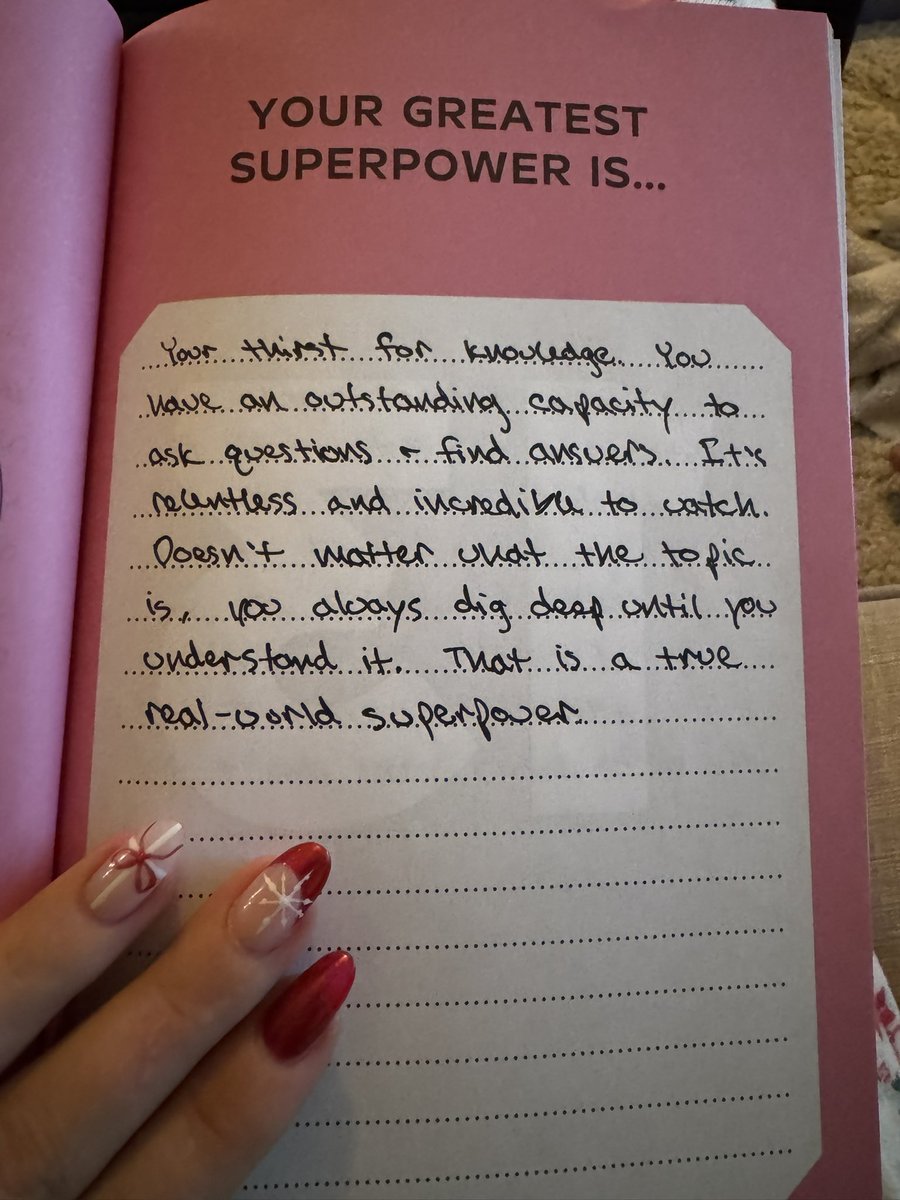 YOUR GREATEST
SUPERPOWER IS...
Your thirst for knowledge. You
have an outstanding capacity to
ask questions + find answers. It's
relentless and incredible to watch.
Doesn't matter what the topic
is, you always dig deep until you
understand it. That is a true
real-world superpower.